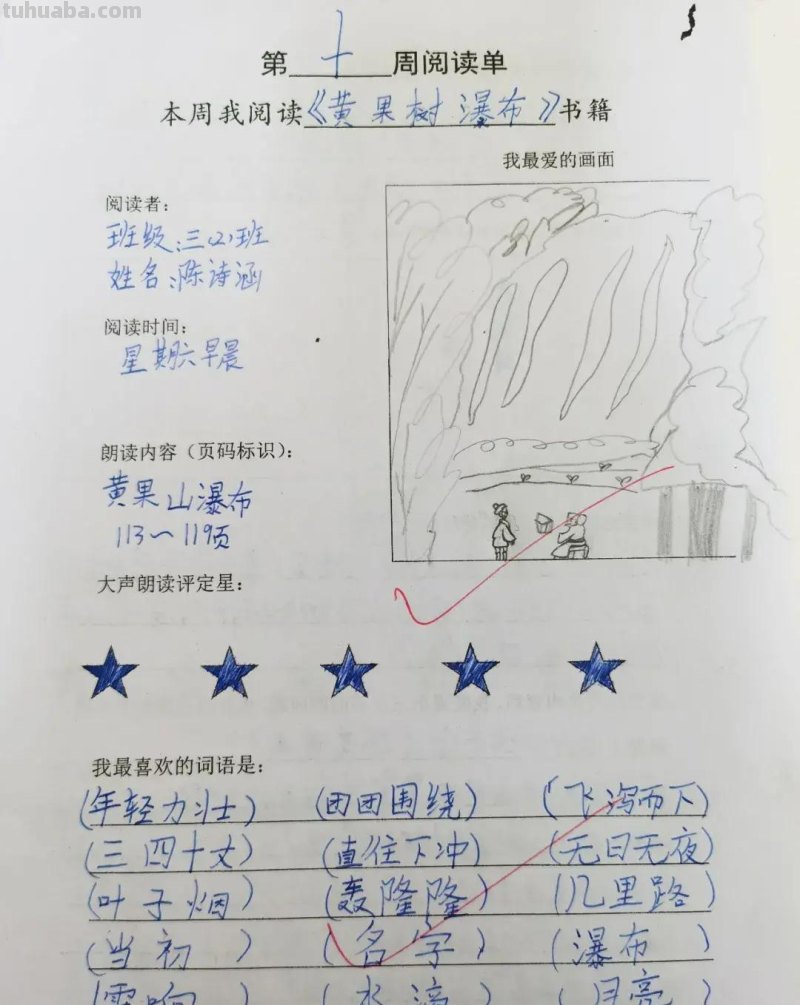 tuhuaba.com
第十周阅读单
本周我阅读《黄果树瀑布》书籍
我最爱的画面
阅读者：
班级：三(2)班
姓名：陈诗涵
阅读时间：
星期六早晨
朗读内容（页码标识）：
黄果山瀑布
113～119页
大声朗读评定星：
我最喜欢的词语是：
(年轻力壮) (团团围绕) (飞泻而下)
(三四十丈) (直往下冲) (无日无夜)
(叶子烟) (轰隆隆) (几里路)
(当初) (名字) (瀑布)
(雷响 (水滴 (月亮